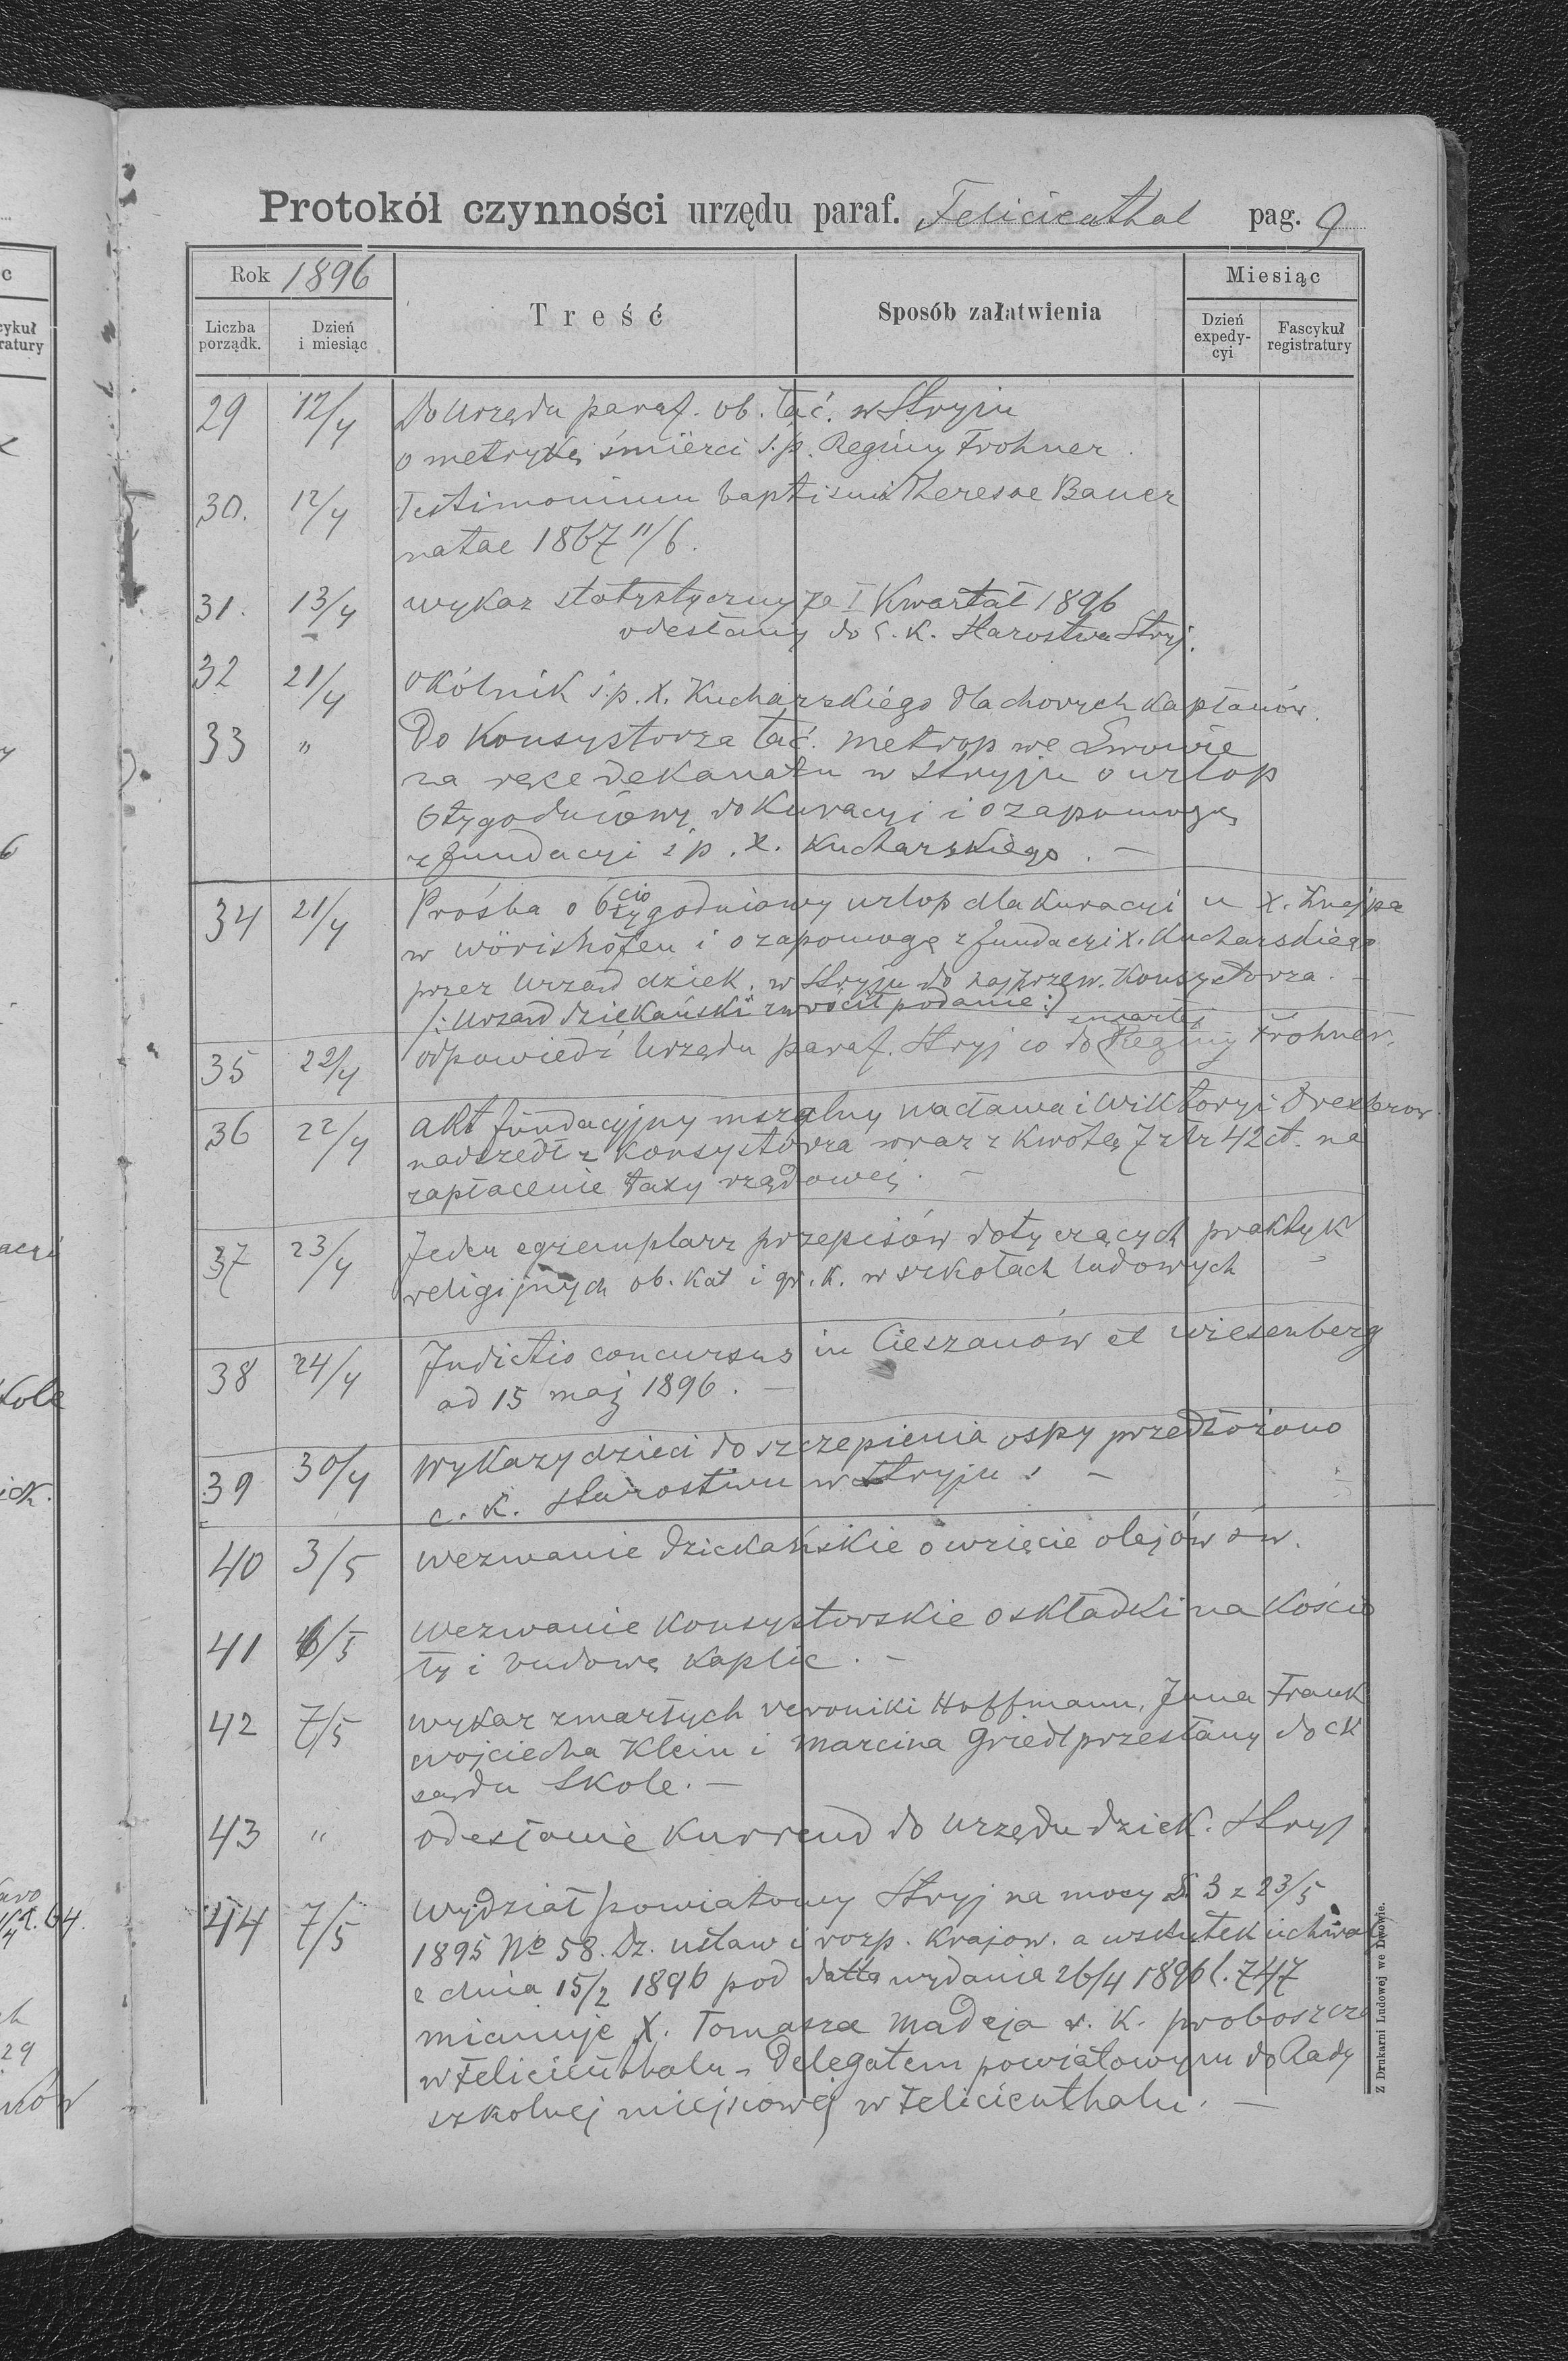 Protokół czynności urzędu paraf. Felicienthal pag. 9
Rok 1896
Treść
Sposób załatwienia
Miesiąc
Liczba porządk.
Dzień i miesiąc
Dzień expedy-cyi
Fascykuł registratury
29 12/4 Do Urzędu paraf. ob. łać. w Stryju
o metrykę śmierci ś.p. Reginy Frohner.
30. 12/4 Testimonium baptismi Theresae Bauer
natae 1867 11/6.
31. 13/4 wykaz statystyczny za I Kwartał 1896
odesłany do c. k. Starostwa Stryj.
32 21/4 okólnik ś.p. X. Kucharskiego dla chorych kapłanów.
33 " Do Konsystorza łać. metrop we Lwowie
na ręce dekanatu w Stryju o urlop
6 tygodniowy do Kuracyi i o zapomogę
z fundacyi ś p. X. Kucharskiego. —
34 21/4 Prośba o 6cio tygodniowy urlop dla Kuracyi u X. Knejpa
w Wörishofen i o zapomogę z fundacyi X. Kucharskiego
przez Urząd dziek. w Stryju do najprzew. Konsystorza. —
/: Urząd dziekański zwrócił podanie :/
35 22/4 odpowiedź Urzędu paraf. Stryj co do zmarłej Reginy Frohner.
36 22/4 akt fundacyjny mszalny Wacława i Wiktoryi Drexlerow
nadszedł z Konsystorza wraz z kwotą 7 złr 42 ct. na
zapłacenie taxy rządowej. —
37 23/4 Jeden egzemplarz przepisów dotyczących praktyk
religijnych ob. kat i gr. k. w szkołach ludowych —
38 24/4 Indictio concursus in Cieszanów et Wiesenberg
ad 15 maj 1896. —
39 30/4 Wykazy dzieci do szczepienia ospy przedłożono
c. k. starostwu w Stryju. —
40 3/5 wezwanie dziekańskie o wzięcie olejów św.
41 6/5 wezwanie Konsystorskie o składki na kościo
ły i budowę Kaplic. —
42 7/5 wykaz zmarłych Veroniki Hoffmann, Frank
wojciecha Klein i Marcina Griedl przesłany do ck
sądu Skole. —
43 " odesłanie Kurrend do Urzędu dziek. Stryj
44 7/5 Wydział powiatowy Stryj na mocy § 3 z 23/5
1895 No 58. Dz. ustaw i rozp. Krajow. a wskutek uchwały
z dnia 15/2 1896 pod datta wydania 26/4 1896 l. 747
mianuje X. Tomasza Madeja r. k. proboszcza
w Felicienthalu – Delegatem powiatowym do Rady
szkolnej miejscowej w Felicienthalu. —
Z Drukarni Ludowej we Lwowie.